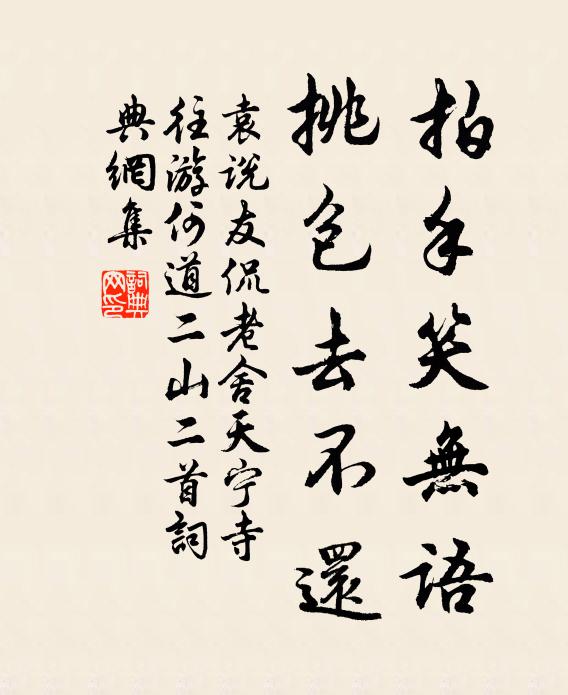 拍手笑無語
挑包去不還
袁説友侃老舍天宁寺
往游何道二山二首詞
典網集
詞典網印